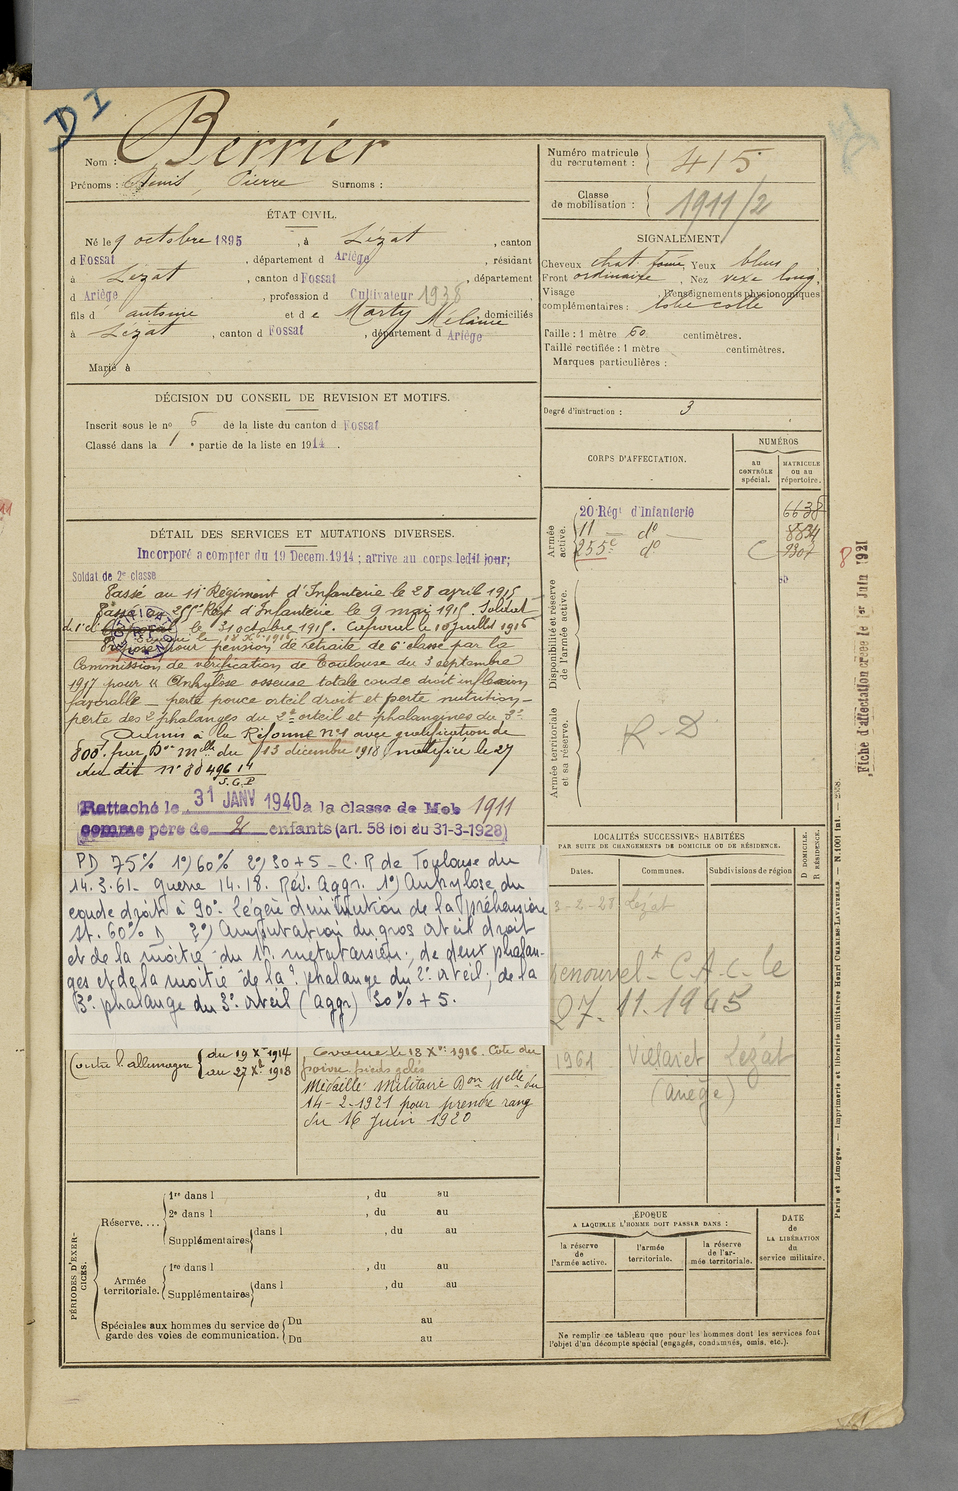 DI
Nom : Berrier
Prénoms : Denis, Pierre Surnoms :
ÉTAT CIVIL.
Né le 9 octobre 1895, à Lézat, canton
d Fossat, département d Ariège, résidant
à Lézat, canton d Fossat, département
d Ariège, profession d Cultivateur 1938
fils d antoine et de Marty Mélanie domiciliés
à Lézat, canton d Fossat, département d Ariège
Marié à
DÉCISION DU CONSEIL DE REVISION ET MOTIFS.
Inscrit sous le no 6 de la liste du canton d Fossat
Classé dans la 1e partie de la liste en 1914.
DÉTAIL DES SERVICES ET MUTATIONS DIVERSES.
Incorporé a compter du 19 Decem. 1914 ; arrive au corps ledit jour;
Soldat de 2e classe
Passé au 11e Régiment d'Infanterie le 28 avril 1915
Passé au 255e Regt d'Infanterie le 9 mai 1915. Soldat
de 1e cl le 31 octobre 1915. Caporal le 10 juillet 1916
Evacué le 18 Xbre 1916
Proposé pour pension de retraite de 6e classe par la
Commission de vérification de Toulouse du 3 septembre
1917 pour "Ankylose osseuse totale coude droit inflexion
favorable - perte pouce orteil droit et perte nutrition -
perte des 2 phalanges du 2e orteil et phalangines du 3e
Admis à la Réforme no 1 avec gratification de
800f par Don Mlle du 13 décembre 1918, notifiée le 27
du dit no 80496 1e
S.G.P
Rattaché le 31 JANV 1940 à la classe de Mob 1911
comme père de 2 enfants (art. 58 loi du 31-3-1928)
PD 75% 1°) 60% 2°) 30+5 - C.R de Toulouse du
14.3.61 - guerre 14.18. Rév. Aggr. 1°) Ankylose du
coude droit à 90°. Légère diminution de la préhension
St. 60% D 2°) Amputation du gros orteil droit
et de la moitié du 1er métatarsien, de deux phalan-
ges et de la moitié de la 1e phalange du 2e orteil, de la
3e phalange du 3e orteil (aggr) 30% + 5.
Contre l'allemagne du 19 Xbre 1914
au 27 Xbre 1918
Evacué le 18 Xbre 1916. Côte du
poivre pieds gelés
Médaille Militaire Don Mlle du
14-2-1921 pour prendre rang
du 16 Juin 1920
PÉRIODES D'EXERCICES.
Réserve....
1re dans l , du au
2e dans l , du au
Supplémentaires dans l , du au
Armée territoriale.
1re dans l , du au
Supplémentaires dans l , du au
Spéciales aux hommes du service de garde des voies de communication.
Du au
Du au
Numéro matricule du recrutement : 415
Classe de mobilisation : 1911/2
SIGNALEMENT.
Cheveux chat foncé, Yeux bleus
Front ordinaire, Nez vexe long,
Visage , Renseignements physionomiques
complémentaires : lobe collé
Taille : 1 mètre 60 centimètres.
Taille rectifiée : 1 mètre centimètres.
Marques particulières :
Degré d'instruction : 3
CORPS D'AFFECTATION.
NUMÉROS
au contrôle spécial.
MATRICULE ou au répertoire.
Armée active.
20 Régt d'Infanterie 6638
11 - do - 8834
255e do C 9307
Disponibilité et réserve de l'armée active.
Armée territoriale et sa réserve.
R-D
LOCALITÉS SUCCESSIVES HABITÉES
PAR SUITE DE CHANGEMENTS DE DOMICILE OU DE RÉSIDENCE.
Dates. Communes. Subdivisions de région
D DOMICILE.
R RÉSIDENCE.
3-2-28 Lezat
Renouvelt C.A.C. le
27-11-1945
1961 Villaret Lezat
(ariège)
ÉPOQUE
A LAQUELLE L'HOMME DOIT PASSER DANS :
la réserve de l'armée active.
l'armée territoriale.
la réserve de l'armée territoriale.
DATE de LA LIBÉRATION du service militaire.
Ne remplir ce tableau que pour les hommes dont les services font
l'objet d'un décompte spécial (engagés, condamnés, omis, etc.).
Fiche d'affectation créée le 1er Juin 1921
8
Paris et Limoges. — Imprimerie et librairie militaires Henri CHARLES-LAVAUZELLE. — N.1001 int. —